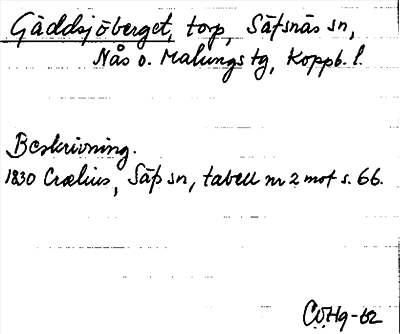 Gäddsjöberget, torp, Säfsnäs sn,
Nås o. Malungs tg, Koppb. l.
Beskrivning.
1830 Crælius, Säfs sn, tabell nr 2 mot s. 66.